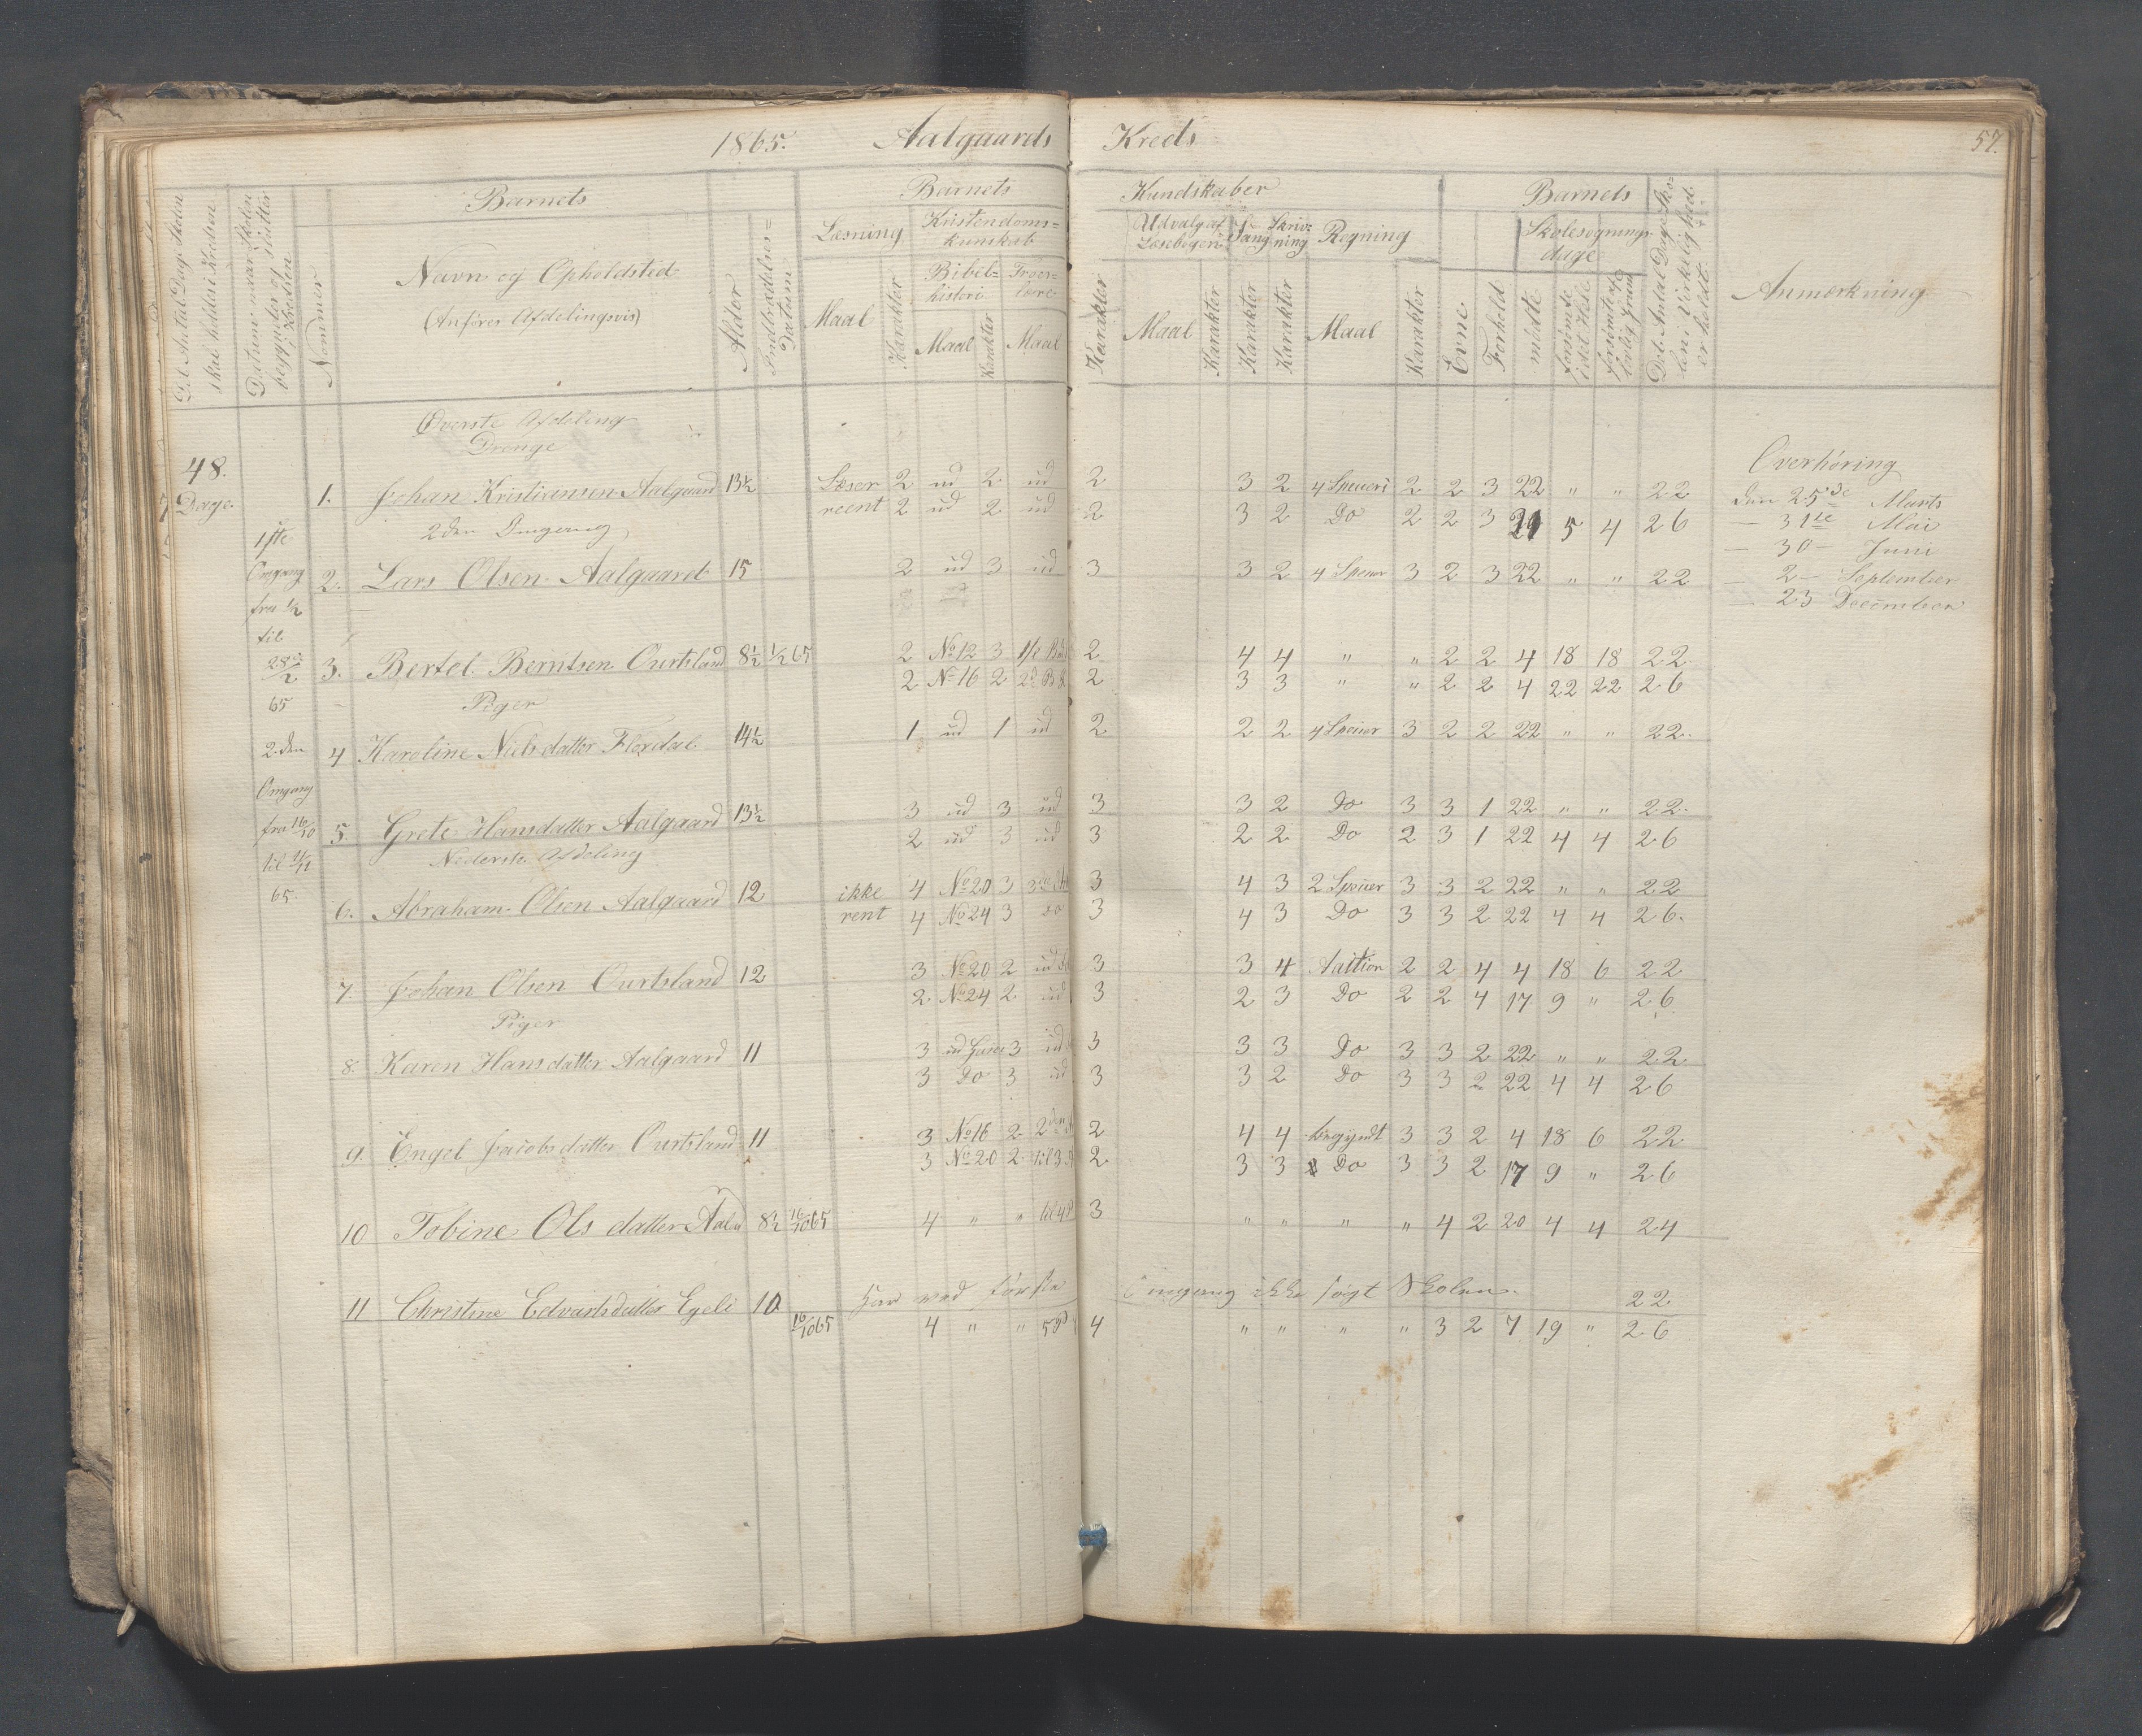 1865. Aalgaards Kreds 57.
Det Antal Dage Skolen skal holdes i Kredsen
Datum naar Skolen begynder og slutter i Kredsen
Nommer
Barnets
Navn og Opholdsted
(Anföres Afdelingsvis)
Alder
Indtrædelses= Datum
Barnets Kundskaber
Læsning
Maal
Karakter
Kristendoms= kunskab
Bibel= histori
Maal
Karakter
Troes= lære
Maal
Karakter
Udvalg af Læsebogen
Maal
Karakter
Sang
Karakter
Skriv= ning
Karakter
Regning
Maal
Karakter
Barnets
Evne
Forhold
Skolesøgnings dage
mödte
forsömte i det Hele
forsömte af lovlig Grund
Det Antal Dage Sko= len i Virkelighed er holdt
Anmærkning
Överste Afdeling
Drenge
48. Dage
1. Johan Kristiansen Aalgaard 13½ Læser 2 ud 2 ud 2 3 2 4 Speueri 2 2 3 22 " " 22
reent 2 ud 2 ud 2 3 2 Do 2 2 3 21 5 4 26
2den Omgang
2. Lars Olsen Aalgaard 15 2 ud 3 ud 3 3 2 4 Speuer 3 2 3 22 " " 22
3. Bertel Berntsen Ourtsland 8½ ½ 65 2 No 12 3 1ste 2 4 4 " " 2 2 4 18 18 22
2 No 16 2 2 3 3 " " 2 2 4 22 22 26
Piger
4 Karoline Nielsdatter Flesdal 14½ 1 ud 1 ud 2 2 2 4 Speuer 3 2 2 22 " " 22.
5. Grete Hansdatter Aalgaard 13½ 3 ud 3 ud 3 3 2 Do 3 3 1 22 " " 22.
2 ud 3 ud 3 2 2 Do 2 3 1 22 4 4 26
Nederste Afdeling
6. Abraham Olsen Aalgaard 12 ikke 4 No 20 3 3 4 3 2 Speuer 3 3 2 22 " " 22
rent 4 No 24 3 Do 3 4 3 Do 3 3 2 22 4 4 26.
7. Johan Olsen Ourtsland 12 3 No 20 2 ud 3 3 4 Aaition 2 2 4 4 18 6 22
2 No 24 2 ud 3 2 3 Do 2 2 4 17 9 " 26
Piger
8. Karen Hansdatter Aalgaard 11 3 ud 3 ud 3 3 3 Do 3 3 2 22 " " 22
3 Do 3 ud 3 3 2 Do 3 3 2 22 4 4 26
9. Engel Jacobsdatter Ourtsland 11 3 No 16 2 2den 2 4 4 begyndt 3 3 2 4 18 6 22
3 No 20 2 til 3 2 3 3 Do 3 3 2 17 9 " 26
10 Tobine Olsdatter Aalg 8½ 16/10 65 4 " " til 4 3 " " " " 4 2 20 4 4 24
11 Christine Edvartsdatter Egeli 10 Har ved förste Omgang ikke sögt Skolen. 22
16/10 65 4 " " 5 4 " " " " 3 2 7 19 " 26
1ste
Omgang
fra ½
til
28/2
65
2den
Omgang
fra 16/10
til
65.
Overhöring
den 25de Marts
— 31te Mai
— 30 — Juni
— 2 — September
— 23 December